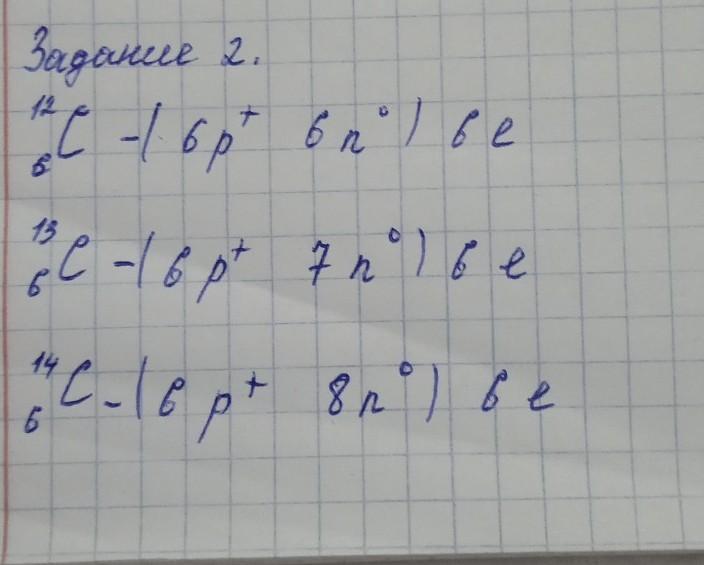 Задание 2.
¹²₆C -( 6 p⁺ 6 n⁰ ) 6 e
¹³₆C -( 6 p⁺ 7 n⁰ ) 6 e
¹⁴₆C -( 6 p⁺ 8 n⁰ ) 6 e